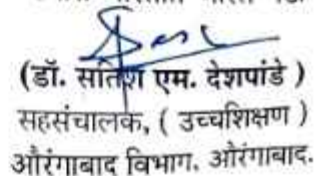 (डॉ. सतिश एम. देशपांडे )
सहसंचालक, ( उच्चशिक्षण )
औरंगाबाद विभाग. औरंगाबाद.